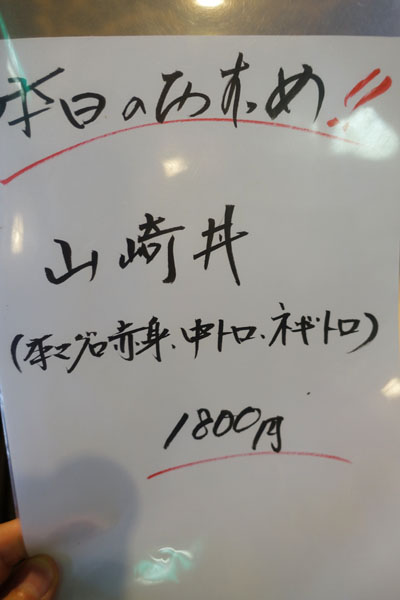 本日のおすすめ!!
山崎丼
(本マグロ赤身、中トロ、ネギトロ)
1800円